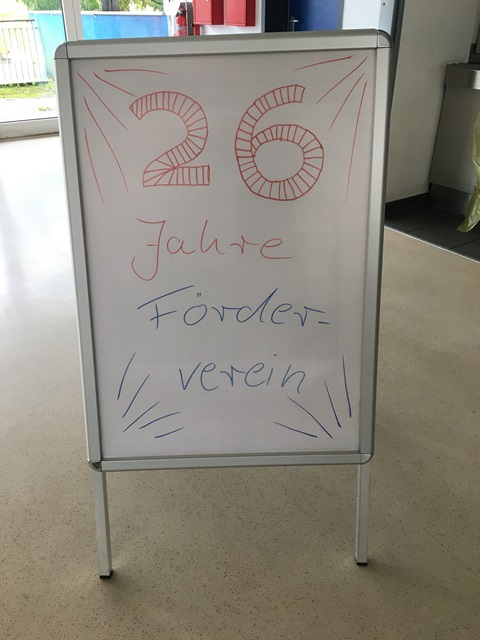 26
Jahre
Förder-
verein